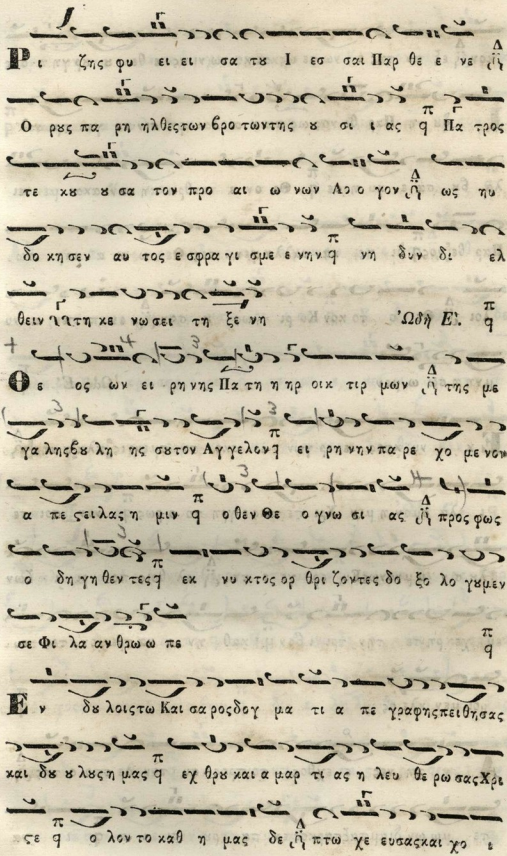 Ρι ζης φυ ει ει σα του Ι εσ σαι Παρ θε ε νε Δ
Ο ρυς πα ρη ηλθεςτων βρο τωντης ου σι ι ας π q Πα τρος
τε κου ου σα τον προ αι ω νων Λο ο γον Δ ως ηυ
δο κη σεν αυ τος ε σφρα γι σμε ε νην π q νη δυν δι ελ
θειν τη κε νω σει τη ξε νη Ὠδὴ Ε΄. π q
Θε ος ων ει ρη νης Πα τη η ηρ οικ τιρ μων Δ της με
γα ληςβου λη ης σουτον Αγ γελον π q ει ρη νην πα ρε χο με νον
α πε ςει λας η μιν π q ο θεν Θε ο γνω σι ας Δ προς φως
ο δη γη θεν τες π q εκ νυ κτος ορ θρι ζοντες δο ξο λο γουμεν
σε Φι λα αν θρω ω πε π q
Εν δου λοιςτω Και σα ροςδογ μα τι α πε γραφηςπειθησας
και δου ου λυς η μας π q εχ θρου και α μαρ τι ας η λευ θε ρω σας Χρι
ςε π q ο λον το καθ η μας δε Δ πτω χε ευσαςκαι χο ι